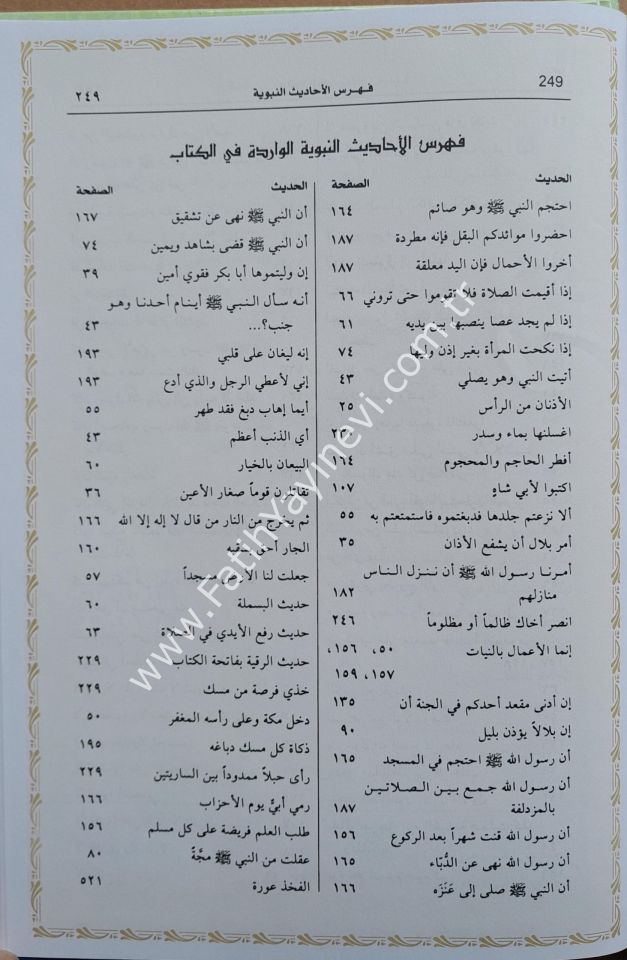 249
فهرس الأحاديث النبوية
٢٤٩
فهرس الأحاديث النبوية الواردة في الكتاب
الحديث الصفحة
احتجم النبي ﷺ وهو صائم ١٦٤
احضروا موائدكم البقل فإنه مطردة ١٨٧
أخروا الأحمال فإن اليد معلقة ١٨٧
إذا أقيمت الصلاة فلا تقوموا حتى تروني ٦٦
إذا لم يجد عصا ينصبها بين يديه ٦١
إذا نكحت المرأة بغير إذن وليها ٧٤
أتيت النبي وهو يصلي ٤٣
الأذنان من الرأس ٢٥
اغسلنها بماء وسدر ٢٣٠
أفطر الحاجم والمحجوم ١٦٤
اكتبوا لأبي شاةٍ ١٠٧
ألا نزعتم جلدها فدبغتموه فاستمتعتم به ٥٥
أمر بلال أن يشفع الأذان ٣٥
أمرنا رسول الله ﷺ أن ننزل الناس
منازلهم ١٨٢
انصر أخاك ظالماً أو مظلوماً ٢٤٦
إنما الأعمال بالنيات ٥٠، ١٥٦،
١٥٧، ١٥٩
إن أدنى مقعد أحدكم في الجنة أن ١٣٥
إن بلالاً يؤذن بليل ٩٠
أن رسول الله ﷺ احتجم في المسجد ١٦٥
أن رسول الله جمع بين الصلاتين
بالمزدلفة ١٨٧
أن رسول الله قنت شهراً بعد الركوع ١٥٦
أن رسول الله نهى عن الدُّبّاء ١٦٥
أن النبي ﷺ صلى إلى عَنَزَه ١٦٦
الحديث الصفحة
أن النبي ﷺ نهى عن تشقيق ١٦٧
أن النبي ﷺ قضى بشاهد ويمين ٧٤
إن وليتموها أبا بكر فقوي أمين ٣٩
أنه سأل النبي ﷺ أينام أحدنا وهو
جنب؟... ٤٣
إنه ليغان على قلبي ١٩٣
إني لأعطي الرجل والذي أدع ١٩٣
أيما إهاب دبغ فقد طهر ٥٥
أي الذنب أعظم ٤٣
البيعان بالخيار ٦٠
تقاتلون قوماً صغار الأعين ٣٦
ثم يخرج من النار من قال لا إله إلا الله ١٦٦
الجار أحق بسقبه ١٦٠
جعلت لنا الأرض مسجداً ٥٧
حديث البسملة ٦٠
حديث رفع الأيدي في الصلاة ٦٣
حديث الرقية بفاتحة الكتاب ٢٢٩
خذي فرصة من مسك ٢٢٩
دخل مكة وعلى رأسه المغفر ٥٠
ذكاة كل مسك دباغه ١٩٥
رأى حبلاً ممدوداً بين الساريتين ٢٢٩
رمي أُبيٌّ يوم الأحزاب ١٦٦
طلب العلم فريضة على كل مسلم ١٥٦
عقلت من النبي ﷺ مجَّةً ٨٠
الفخذ عورة ٥٢١
www.FatihYayinevi.com.tr